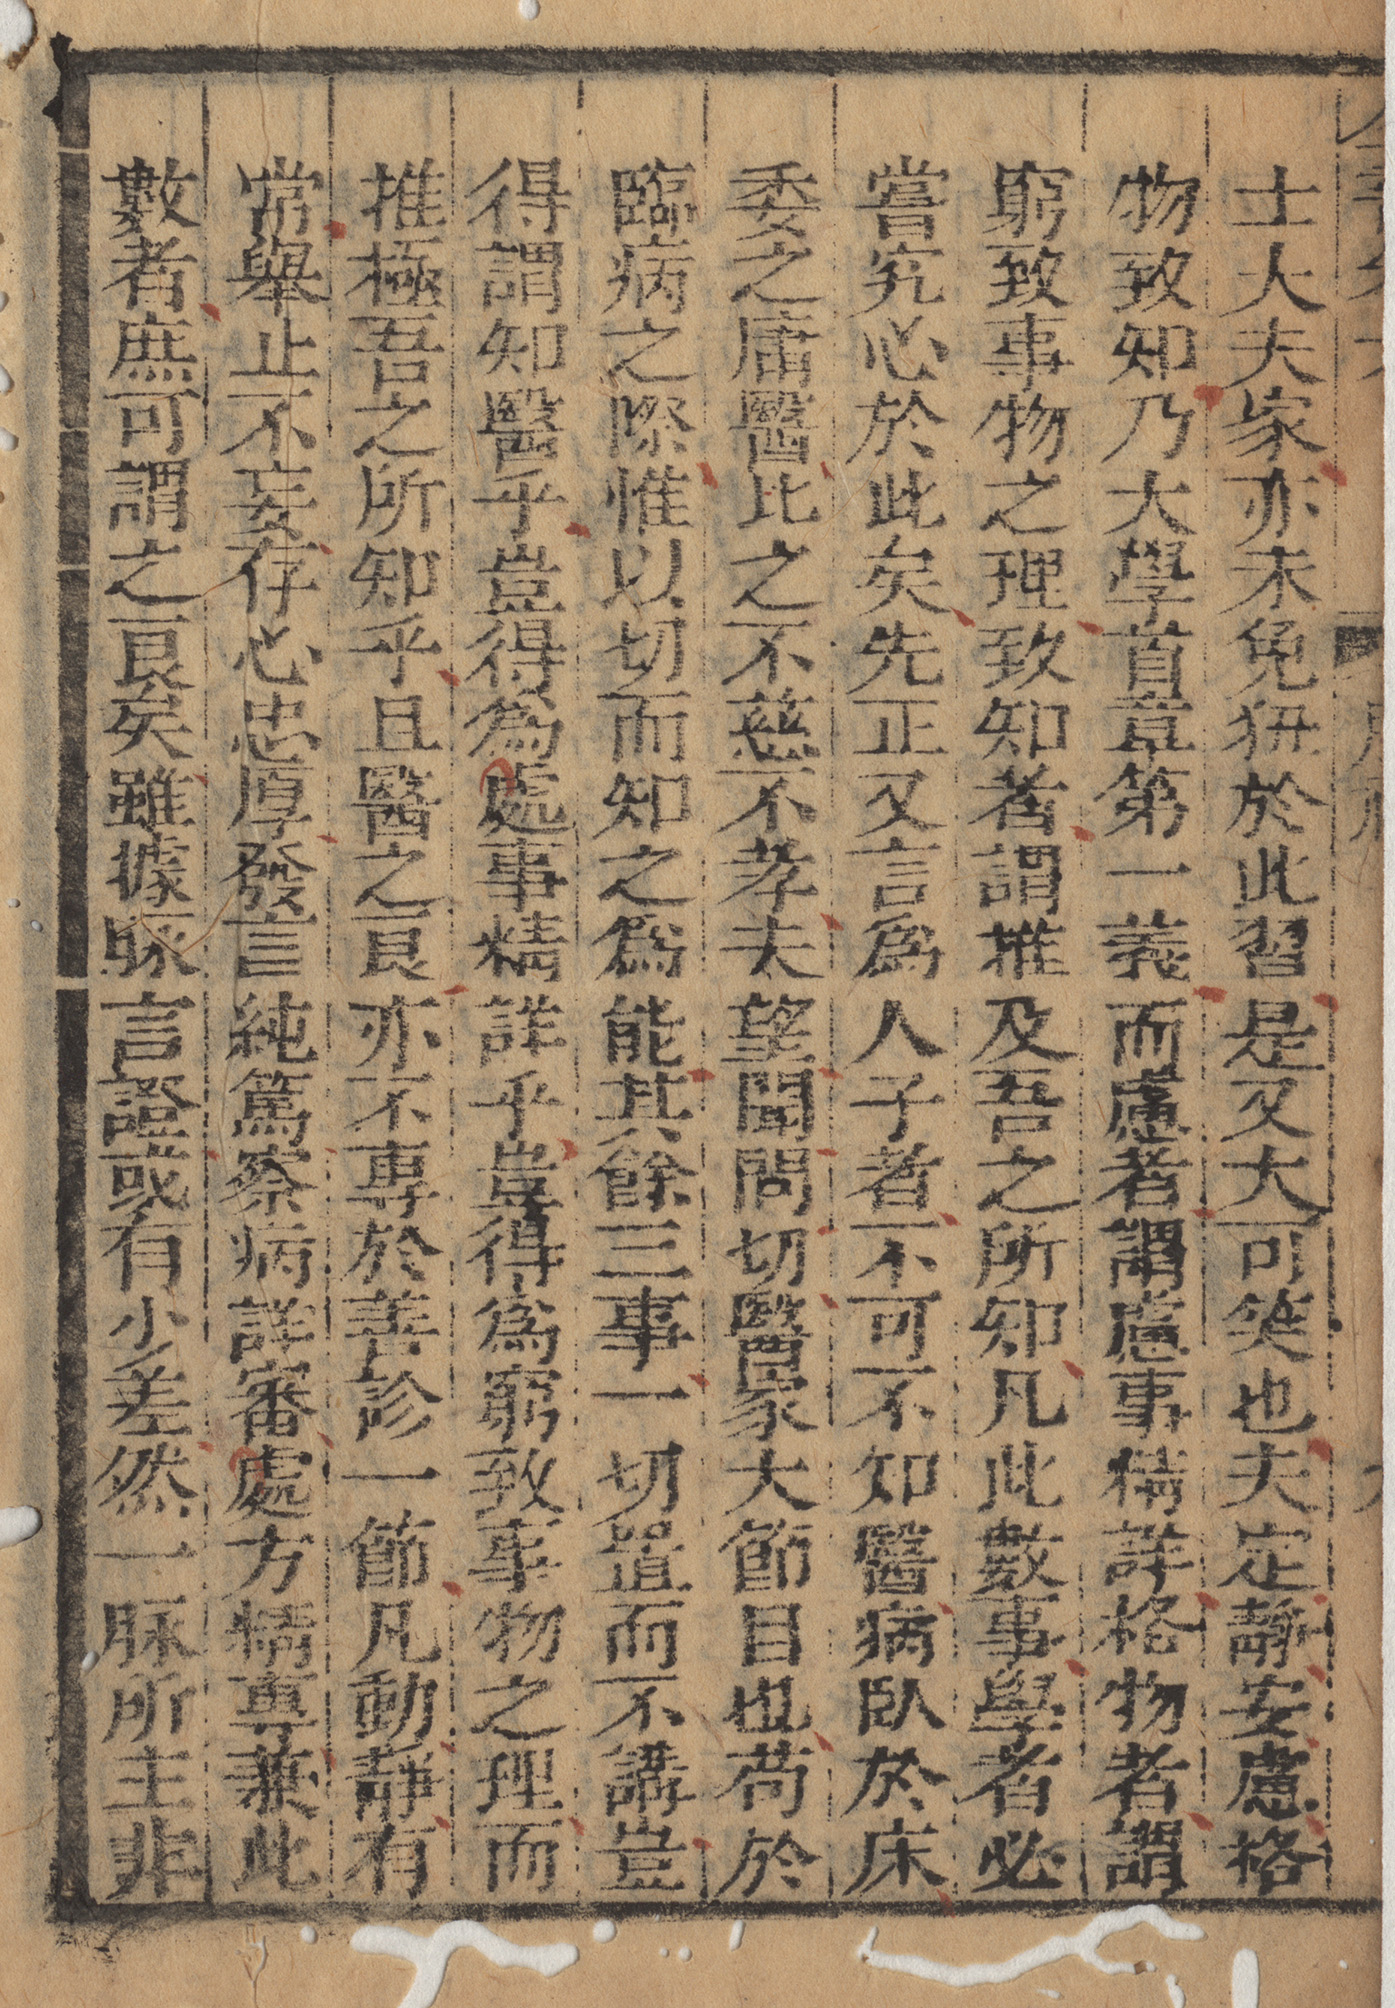 士大夫家亦未免狃於此習是又大可笑也夫定靜安慮格
物致知乃大學首章第一義而慮者謂慮事精詳格物者謂
窮致事物之理致知者謂推及吾之所知凡此數事學者必
嘗究心於此矣先正又言為人子者不可不知醫病臥於床
委之庸醫比之不慈不孝夫望聞問切醫家大節目也苟於
臨病之際惟以切而知之為能其餘三事一切置而不講豈
得謂知醫乎豈得為處事精詳乎豈得為窮致事物之理而
推極吾之所知乎且醫之良亦不專於善診一節凡動靜有
常舉止不妄存心忠厚發言純篤察病詳審處方精專兼此
數者庶可謂之良矣雖據脈言證或有少差然一脈所主非